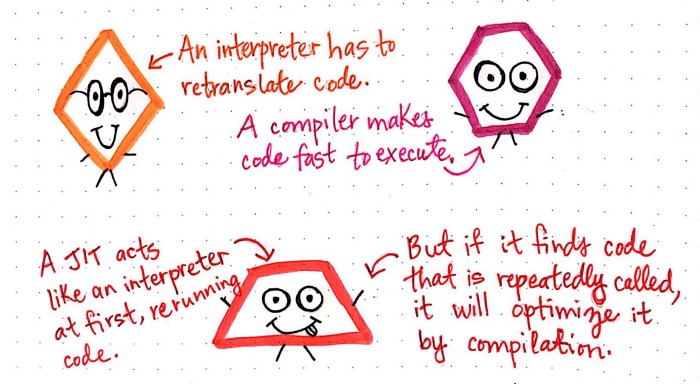 An interpreter has to
retranslate code.
A compiler makes
code fast to execute.
A JIT acts
like an interpreter
at first, rerunning
code.
But if it finds code
that is repeatedly called,
it will optimize it
by compilation.